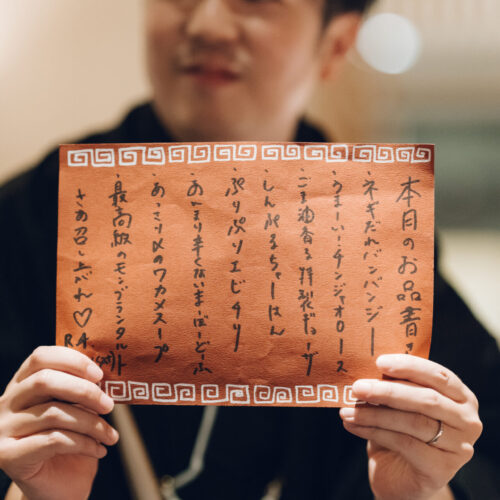 本日のお品書き
・ネギだれバンバンジー
・うまーい!チンジャオロース
・ごま油香る特製ギョーザ
・しんぷるちゃーはん
・ぷりぷりエビチリ
・あんまり辛くないまーぼーどーふ
・あっさり味のワカメスープ
・最高級のモンブランタルト
さあ召し上がれ♡